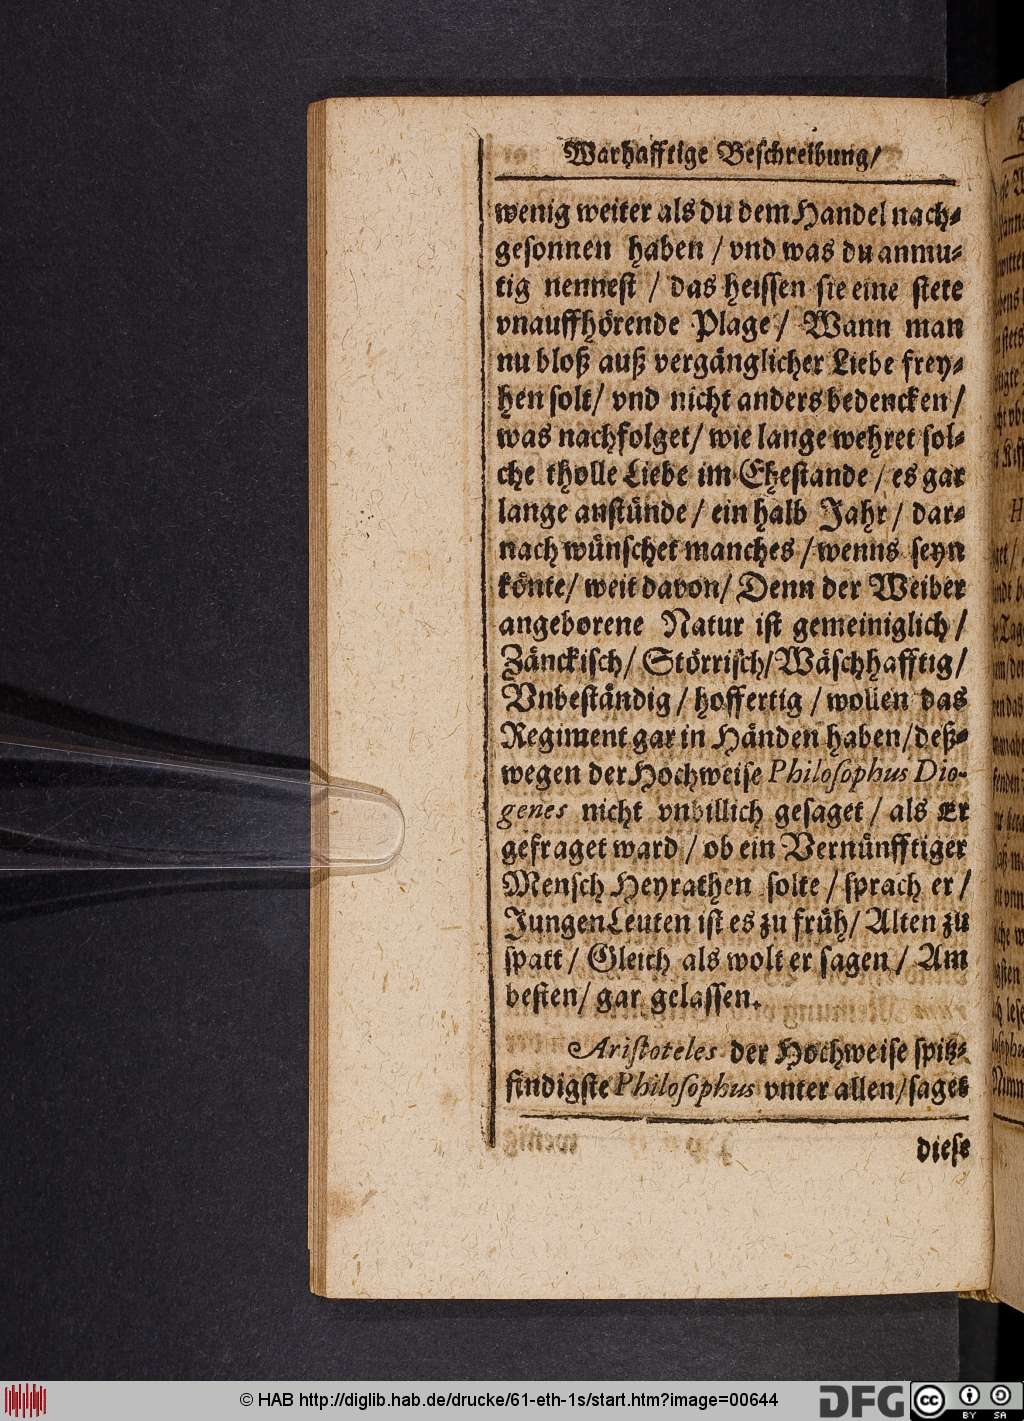 Warhafftige Beschreibung/
wenig weiter als du dem Handel nach-
gesonnen haben / vnd was du anmu-
tig nennest / das heissen sie eine stete
vnauffhörende Plage / Wann man
nu bloß auß vergänglicher Liebe frey-
hen solt/ vnd nicht anders bedencken /
was nachfolget/ wie lange wehret sol-
che tholle Liebe im Ehestande / es gar
lange anstünde / ein halb Jahr / dar-
nach wünschet manches / wenns seyn
könte/ weit davon/ Denn der Weiber
angeborene Natur ist gemeiniglich /
Zänckisch/ Störrisch/ Wäschhafftig/
Vnbeständig / hoffertig / wollen das
Regiment gar in Händen haben/ deß-
wegen der Hochweise Philosophus Dio-
genes nicht vnbillich gesaget / als Er
gefraget ward / ob ein Vernünfftiger
Mensch Heyrathen solte / sprach er /
Jungen Leuten ist es zu früh/ Alten zu
spatt / Gleich als wolt er sagen / Am
besten/ gar gelassen.
Aristoteles der Hochweise spitz-
findigste Philosophus vnter allen/ saget
diese
© HAB http://diglib.hab.de/drucke/61-eth-1s/start.htm?image=00644
DFG
cc
BY SA